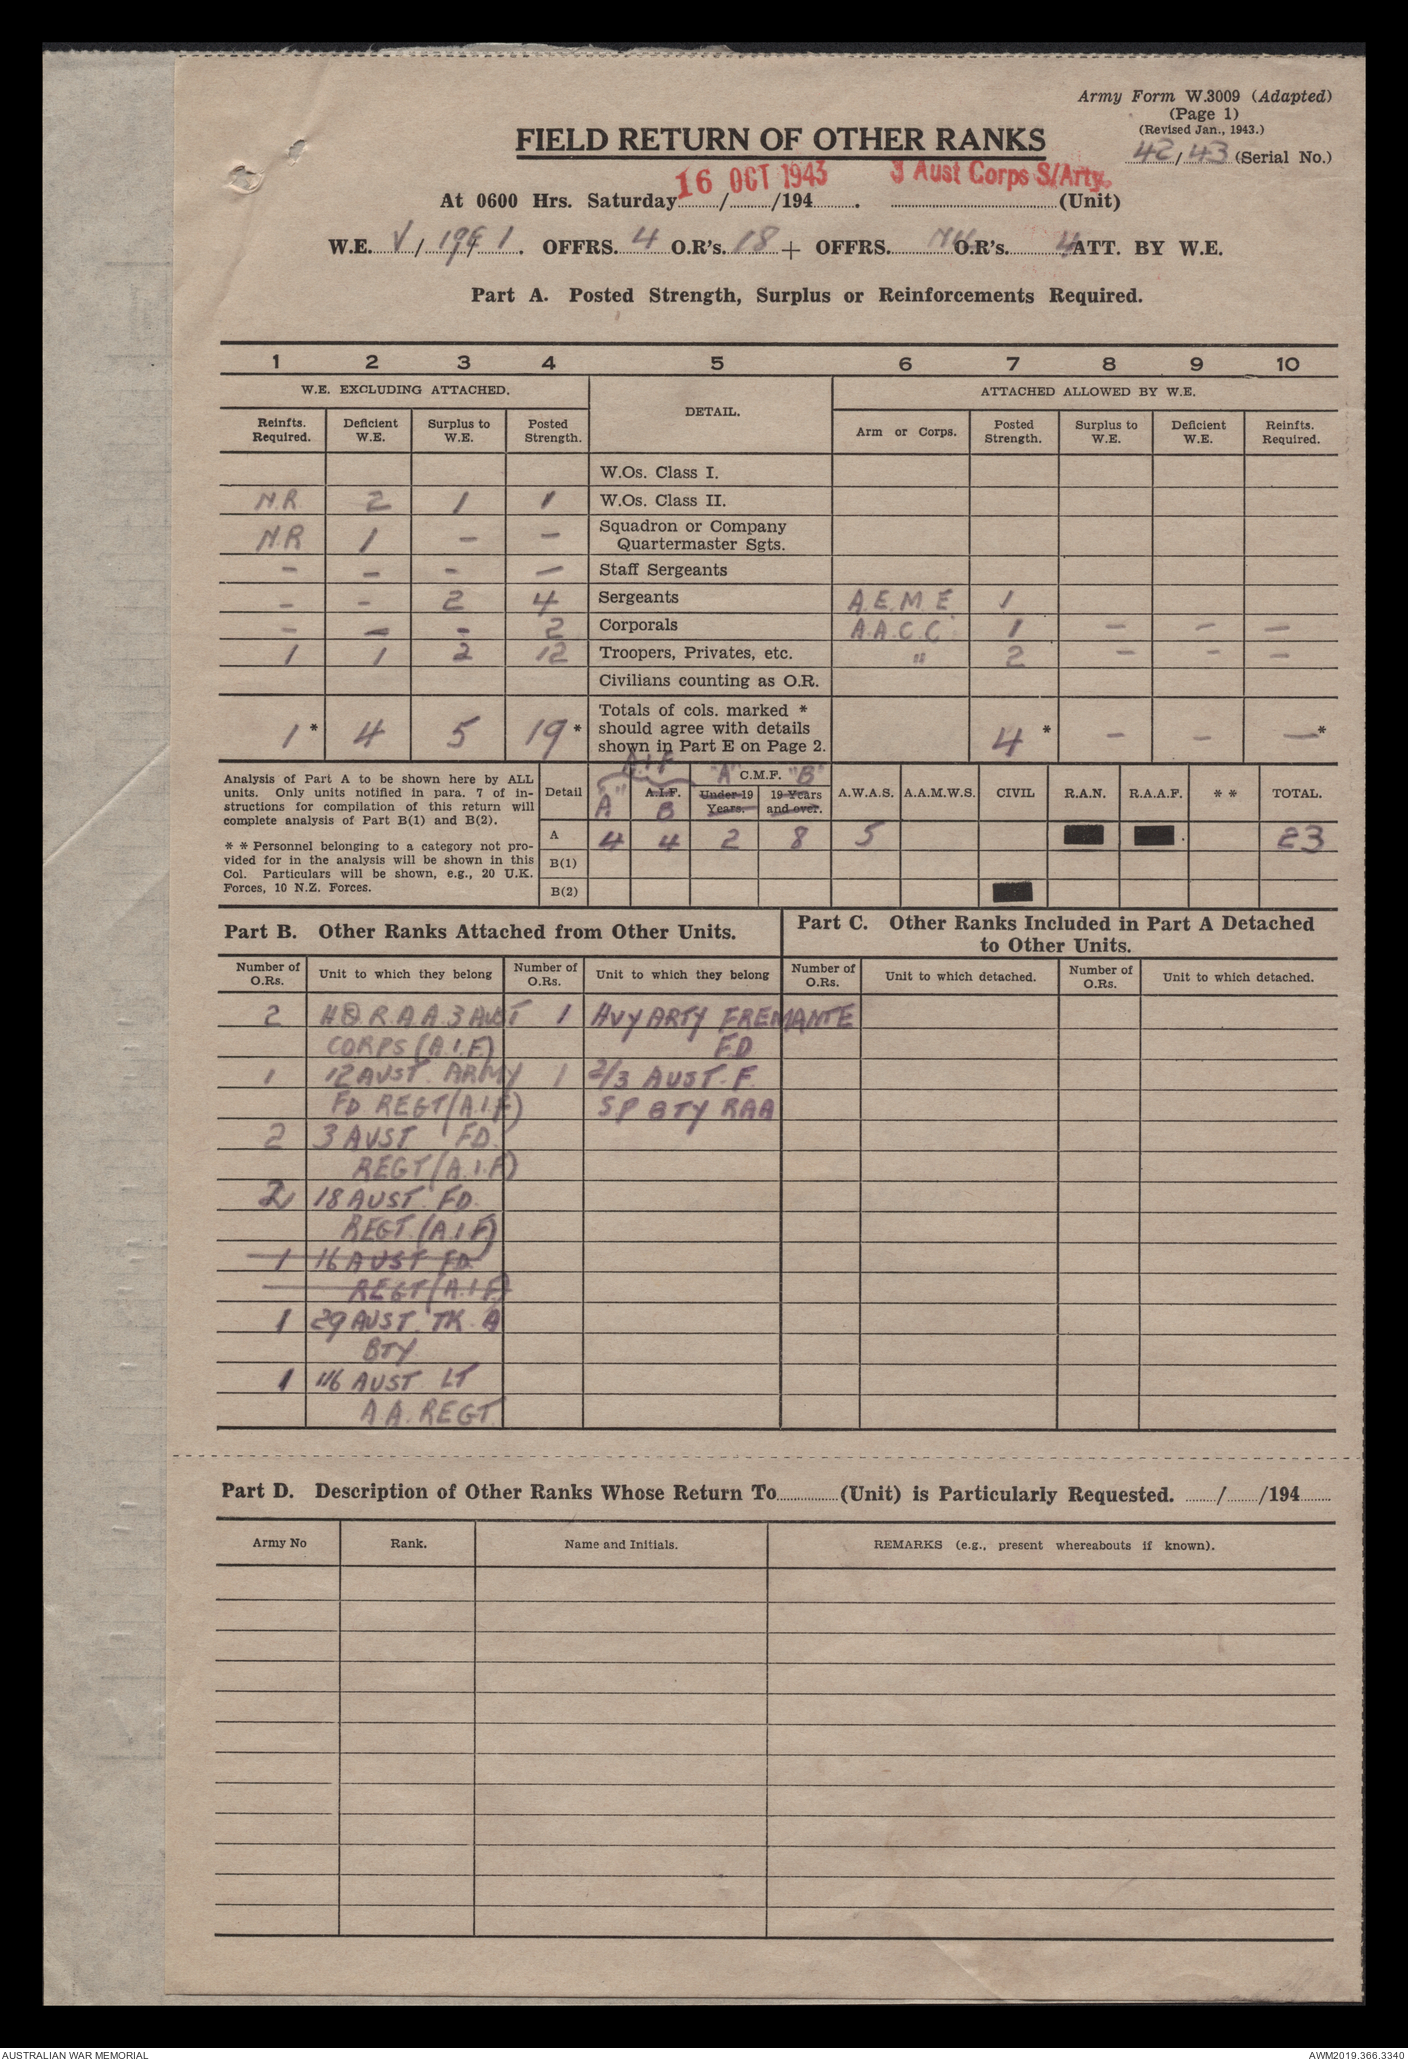 Army Form W.3009 (Adapted)
(Page 1)
(Revised Jan., 1943.)
42/43 (Serial No.)
FIELD RETURN OF OTHER RANKS
At 0600 Hrs. Saturday 16 OCT 1943 /194 . 3 Aust Corps S/Arty. (Unit)
W.E. V / 19 / 1 . OFFRS. 4 O.R's. 18 + OFFRS. NIL O.R's. 4 ATT. BY W.E.
Part A. Posted Strength, Surplus or Reinforcements Required.
1 2 3 4 5 6 7 8 9 10
W.E. EXCLUDING ATTACHED. DETAIL. ATTACHED ALLOWED BY W.E.
Reinfts. Required. Deficient W.E. Surplus to W.E. Posted Strength. Arm or Corps. Posted Strength. Surplus to W.E. Deficient W.E. Reinfts. Required.
W.Os. Class I.
N.R 2 1 1 W.Os. Class II.
N.R 1 - - Squadron or Company
Quartermaster Sgts.
- - - - Staff Sergeants
- - 2 4 Sergeants A.E.M.E. 1
- - - 2 Corporals A.A.C.C. 1 - - -
1 1 2 12 Troopers, Privates, etc. " 2 - - -
Civilians counting as O.R.
Totals of cols. marked *
should agree with details
shown in Part E on Page 2.
1 * 4 5 19 * 4 * - - - *
Analysis of Part A to be shown here by ALL
units. Only units notified in para. 7 of in-
structions for compilation of this return will
complete analysis of Part B(1) and B(2).
* * Personnel belonging to a category not pro-
vided for in the analysis will be shown in this
Col. Particulars will be shown, e.g., 20 U.K.
Forces, 10 N.Z. Forces.
A.I.F "A" C.M.F. "B"
Detail "A" A.I.F. B Under 19 Years. 19 Years and over. A.W.A.S. A.A.M.W.S. CIVIL R.A.N. R.A.A.F. * * TOTAL.
A 4 4 2 8 5 23
B(1)
B(2)
Part B. Other Ranks Attached from Other Units.
Part C. Other Ranks Included in Part A Detached
to Other Units.
Number of O.Rs. Unit to which they belong Number of O.Rs. Unit to which they belong Number of O.Rs. Unit to which detached. Number of O.Rs. Unit to which detached.
2 HQ R.A.A. 3 AUST 1 HVY ARTY FREMANTE
CORPS (A.I.F) F.D
1 12 AUST. ARMY 1 2/3 AUST. F.
FD REGT (A.I.F) S.P BTY RAA
2 3 AUST FD.
REGT (A.I.F)
2 18 AUST. FD.
REGT. (A.I.F)
1 16 AUST FD.
REGT (A.I.F)
1 29 AUST. TK. A
BTY
1 116 AUST. LT
A.A. REGT.
Part D. Description of Other Ranks Whose Return To (Unit) is Particularly Requested. / /194
Army No Rank. Name and Initials. REMARKS (e.g., present whereabouts if known).
AUSTRALIAN WAR MEMORIAL
AWM2019.366.3340